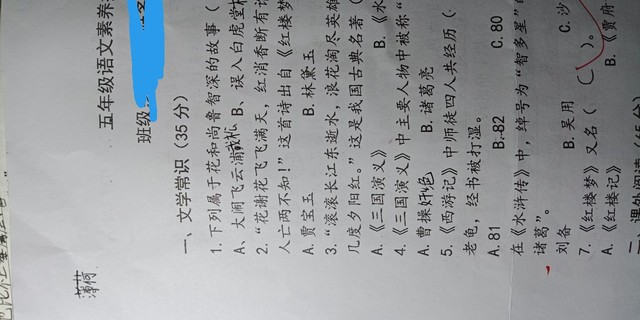 五年级语文素养
班级
一、文学常识（35分）
1. 下列属于花和尚鲁智深的故事（
A、大闹飞云浦 B、误入白虎堂
2. “花谢花飞飞满天，红消香断有
人亡两不知！”这首诗出自《红楼梦
A. 贾宝玉 B. 林黛玉
3. “滚滚长江东逝水，浪花淘尽英雄
几度夕阳红。”这是我国古典名著（
A. 《三国演义》 B. 《水
4. 《三国演义》中主要人物中被称“
A. 曹操奸 B. 诸葛亮
5. 《西游记》中师徒四人共经历（
老龟，经书被打湿。
A. 81 B. 82 C. 80
在《水浒传》中，绰号为“智多星
诸葛”。
刘备 B. 吴用 C. 沙
7. 《红楼梦》又名（ ）。
A. 《红楼记》 B. 《贾府
二、课外阅读